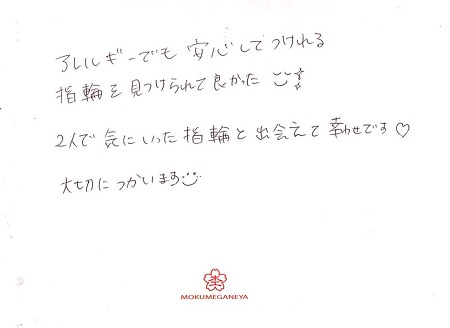 アレルギーでも安心してつけれる
指輪を見つけられて良かった
2人で気にいった指輪と出会えて幸わせです♡
大切につかいます
MOKUMEGANEYA